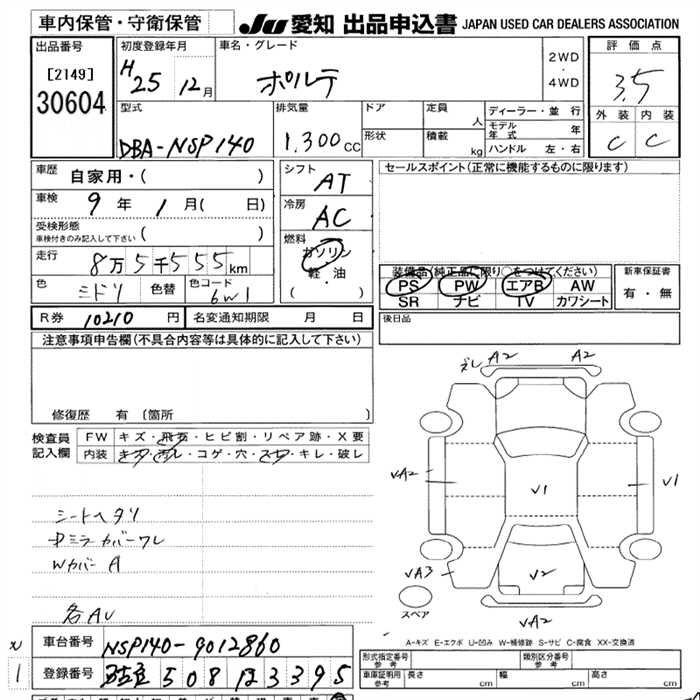 車内保管・守衛保管
JU 愛知 出品申込書 JAPAN USED CAR DEALERS ASSOCIATION
出品番号
[2149]
30604
初度登録年月
H25 12月
車名・グレード
ポルテ
2WD
・
4WD
評価点
3.5
外装 内装
C C
型式
DBA-NSP140
排気量
1.300 CC
ドア
定員 人
形状
積載 kg
ディーラー・並行
モデル年式 年
ハンドル 左・右
車歴
自家用・( )
車検
9年 1月( 日)
受検形態
車検付きのみ記入して下さい ( )
走行
8万5千555km
色 ミドリ
色替
色コード 6W1
シフト
AT
冷房
AC
燃料
ガソリン
軽・油
( )
セールスポイント(正常に機能するものに限ります)
装備品(純正品に限り○をつけてください)
PS PW エアB AW
SR ナビ TV カワシート
新車保証書
有・無
R券 10210 円
名変通知期限 月 日
後日品
注意事項申告欄(不具合内容等は具体的に記入して下さい)
修復歴 有 (箇所 )
検査員記入欄
FW キズ・飛石・ヒビ割・リペア跡・X要
内装 キズ・汚レ・コゲ・穴・スレ・キレ・破レ
シートヘタリ
中ミラカバーワレ
Wカバー A
各AU
ズレ A2 A2
VA2
V1
V1
VA3
V2
VA2
スペア
A-キズ E-エクボ U-凹み W-補修跡 S-サビ C-腐食 XX-交換済
車台番号
NSP140-9012860
1
登録番号
508 123395
形式指定番号
参考
類別区分番号
参考
車庫証明用
参考
長さ cm
幅 cm
高さ cm